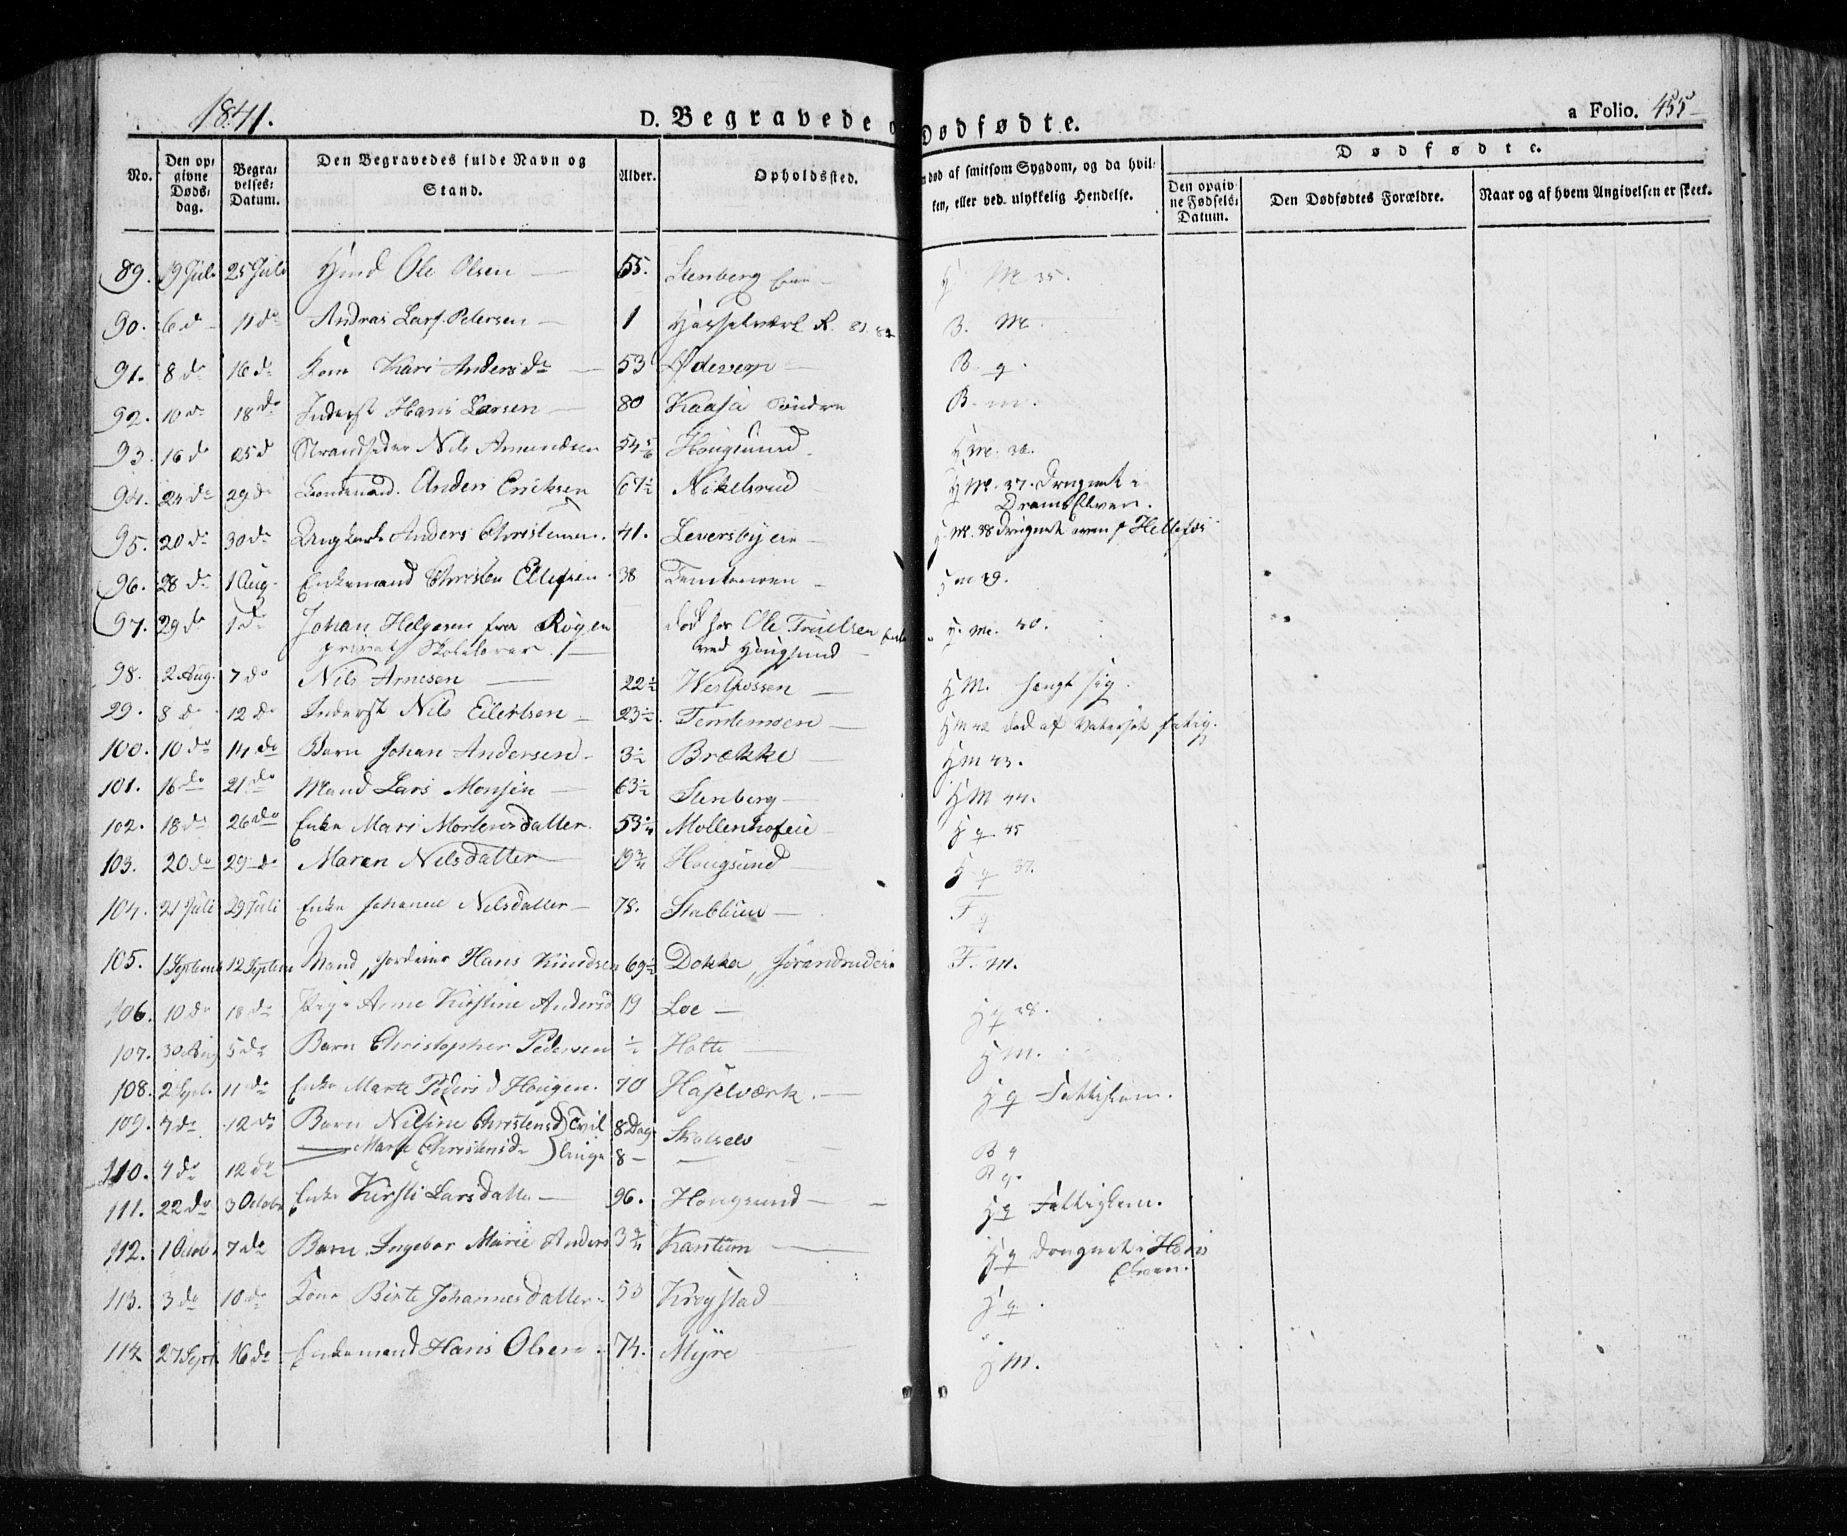 1841.
D. Begravede o
Dødfødte.
a Folio. 455
No.
Den opgivne Dødsdag.
Begravelses-Datum.
Den Begravedes fulde Navn og Stand.
Alder.
Opholdssted.
død af smitsom Sygdom, og da hvilken, eller ved ulykkelig Hendelse.
Dødfødte.
Den opgivne Fødsels-Datum.
Den Dødfødtes Forældre.
Naar og af hvem Angivelsen er skeet.
89. 19 Juli 25 Juli Ole Olsen 55. Stenberg H M 35.
90. 6 do 11 do Andras Lars Petersen 1 B. M.
91. 8 do 16 do Kone Kari Andersdr 53 B. q.
92. 10 do 18 do Inderst Hans Larsen 80 Kaasa Søndre B. m.
93. 16 do 25 d Strandsidder Nils Amundsen 54 Hougsund H M. 36.
94. 24 do 29 do Anders Eriksen 67½ Nikelsrud H M. 37. Drugnet i
Drams Elven.
95. 20 do 30 do Anders Christensen. 41. Leversbyeie H. M. 38 Drugnet Helle fos
96. 28 do 1 Aug. Enkemand Christen Ellefsen 38 M 39.
97. 29 do 1 do Johan Helgesen fra Røyen død hos Ole Truelsen H. M. 40.
privat Skolelærer ved Hougsund
98. 2 Aug. 7 do Nils Arnesen 22½ Westfossen H M. hengt sig.
29. 8 do 12 do Inderst Nils Eilertsen 23½ H M 42 død af
100. 10 do 14 do Barn Johan Andersen 3½ Brække H M 43.
101. 16 do 21 do Mand Lars Monsen 63½ Stenberg H M 44.
102. 18 do 26 do Enke Mari Mortensdatter 53 Møllenhofeie H q 45
103. 20 do 29 do Maren Nilsdatter 19¾ Hougsund H q 37.
104. 21 Juli 29 Juli Enke Johanne Nilsdatter 78. F q
105. 1 Septemb 12 Septem Mand, Hans Knudsen 69½ Dokka, F. M.
106. 10 do 18 do Pige Anne Kirstine Andersd 19 Loe H q 38.
107. 30 Aug 5 do Barn Christopher Pedersen ½ Holte H M.
108. 2 Sept. 11 do Enke Marte Peders d Hougen. 70 Haselværk. H q Fattiglem.
109. 7 do 12 do Barn Nilsine Christensd Tvil 8 Dag Skotselv B q
110. 4 do 12 do — Marte Christensdr linge 8 — B q.
111. 22 do 3 Octobr Enke Kirsti Larsdatter 96. Hougsund H q Fattiglem.
112. 1 Octob 7 do Barn Ingebor Marie Anders 3¾ H q Drugnet i
Elven.
113. 3 do 10 do Kone Birte Johannesdatter 53 Krogstad H q.
114 27 Sept 16 do Enkemand Hans Olsen 74. Myre H M.